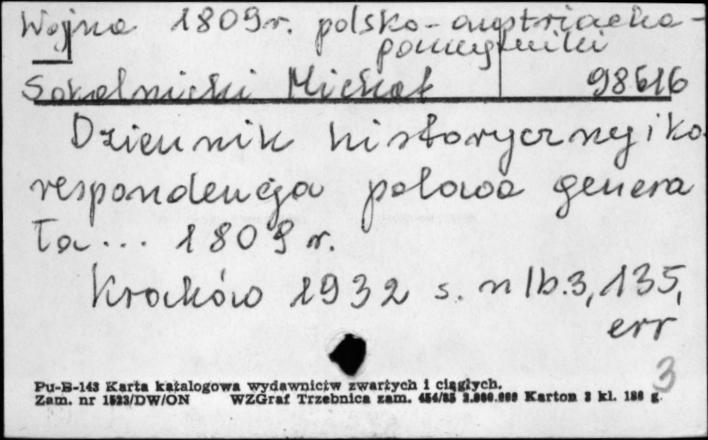 Wojna 1809 r. polsko-austriacka -
pamiętniki
Sokolnicki Michał 98616
Dziennik historyczny i ko
respondencja polowa genera
ła... 1809 r.
Kraków 1932 s. nlb. 3, 135,
err
3
Pu-B-143 Karta katalogowa wydawnictw zwartych i ciągłych.
Zam. nr 1523/DW/ON WZGraf Trzebnica zam. 454/85 2.000.000 Karton 3 kl. 180 g.